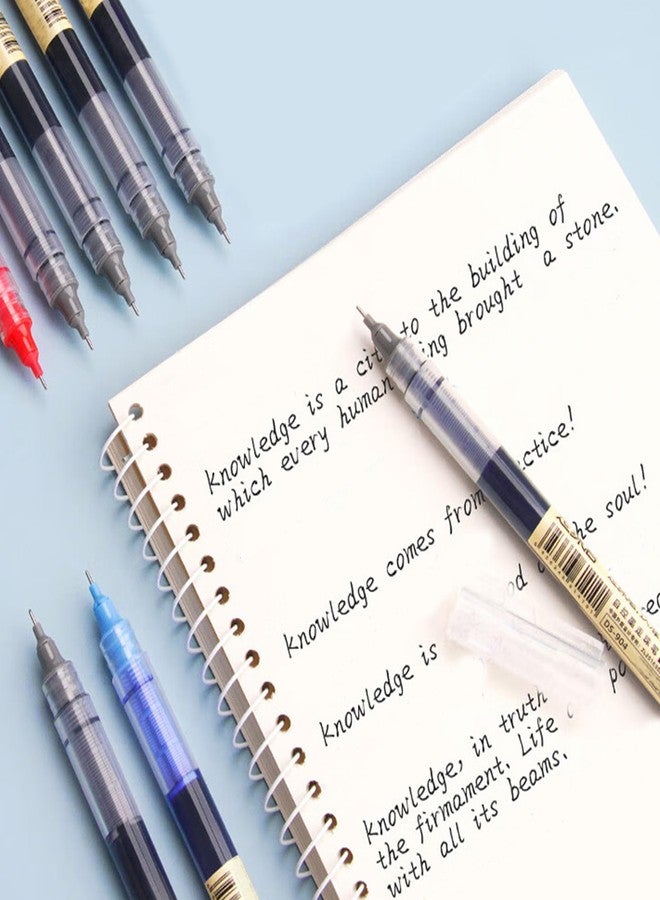 knowledge is a cit to the building of
which every human ing brought a stone.
knowledge comes from ctice!
knowledge is d he soul!
knowledge, in truth
the firmament. Life
with all its beams.
DS-904